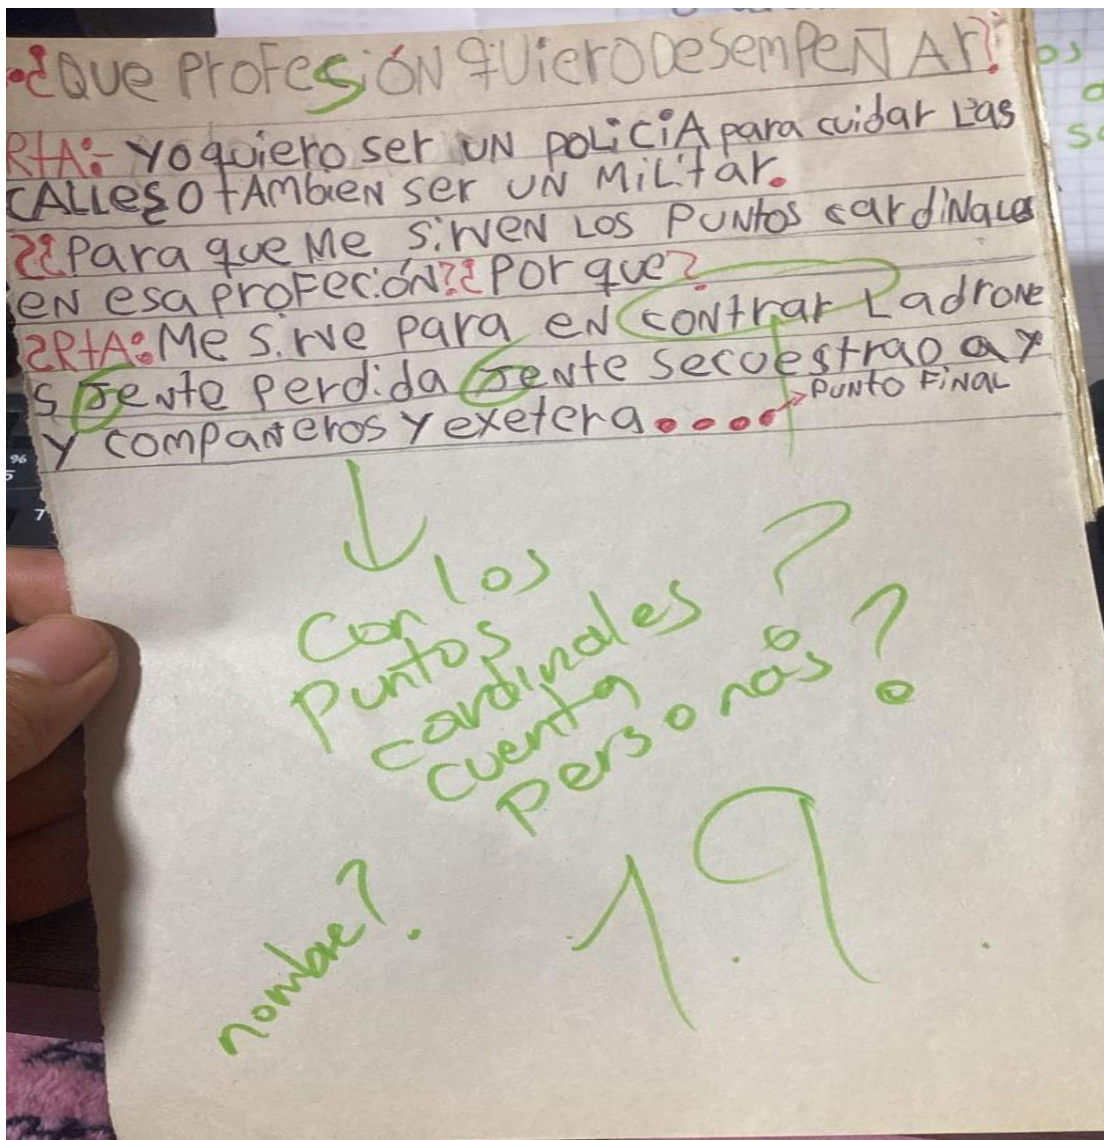 ¿QUE PROFESIÓN QUIERO DESEMPEÑAR?
RtA:- Yo quiero ser UN POLICIA para cuidar Las
CALLES O tAmbien ser UN MiLitar.
¿¿Para que Me sirven Los Puntos cardinales
EN esa profeción?¿Por que?
RtA: Me sirve para en contrar Ladrone
s Jente perdida Jente secuestrao a y
PUNTO FINAL
y compañeros y exetera....
Con los
puntos
cardinales ?
cuenta
personas ?
nombre?
1.9